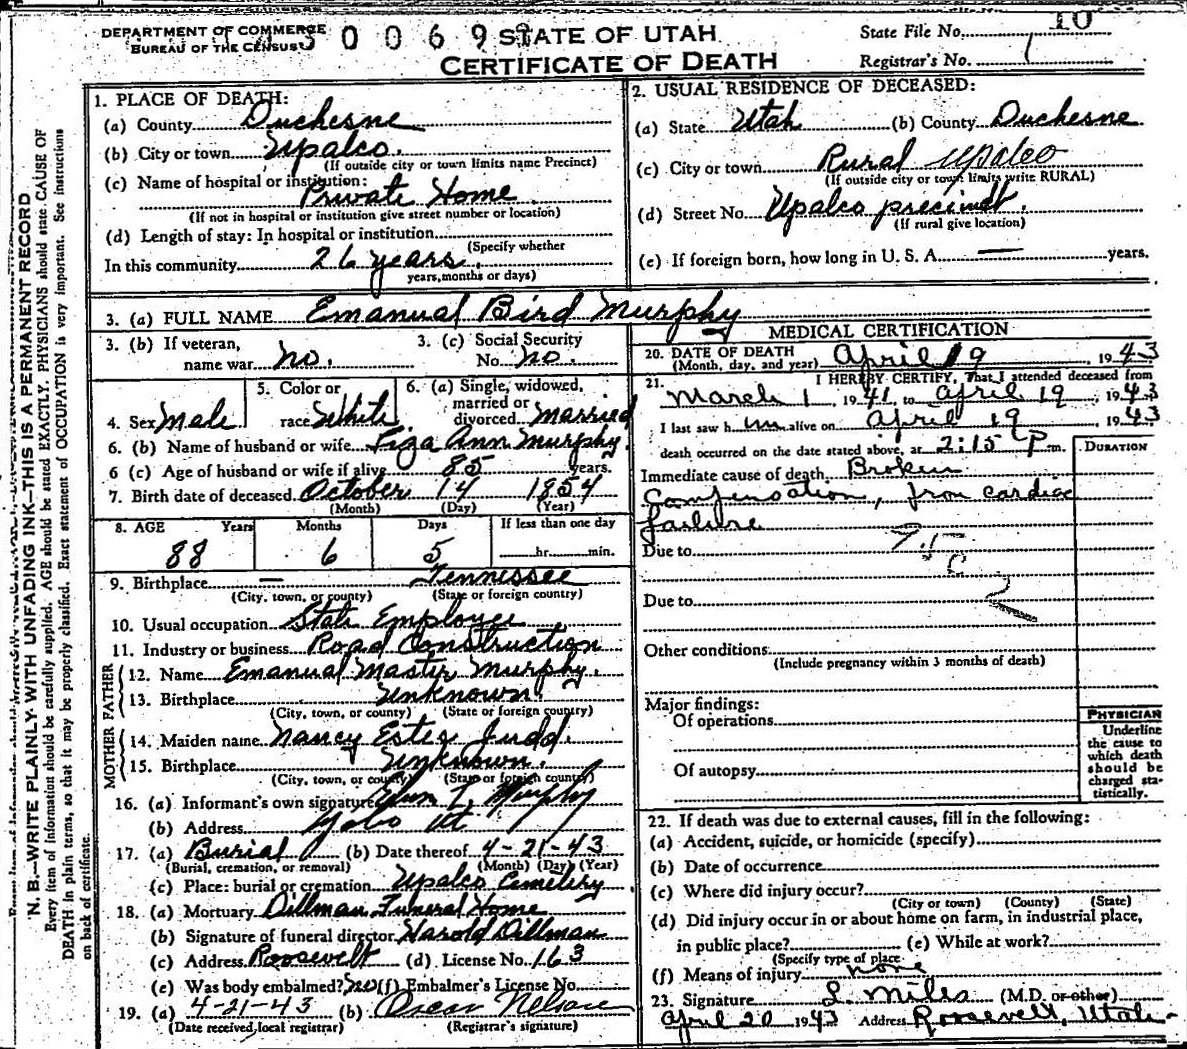 DEPARTMENT OF COMMERCE
BUREAU OF THE CENSUS
0 0 6 9
STATE OF UTAH
CERTIFICATE OF DEATH
State File No. 10
Registrar's No. 1
N. B.—WRITE PLAINLY WITH UNFADING INK—THIS IS A PERMANENT RECORD
Every item of information should be carefully supplied. AGE should be stated EXACTLY. PHYSICIANS should state CAUSE OF
DEATH in plain terms, so that it may be properly classified. Exact statement of OCCUPATION is very important. See instructions
on back of certificate.
1. PLACE OF DEATH:
(a) County Duchesne
(b) City or town Upalco.
(If outside city or town limits name Precinct)
(c) Name of hospital or institution:
Private Home
(If not in hospital or institution give street number or location)
(d) Length of stay: In hospital or institution
(Specify whether
In this community 26 years.
years, months or days)
2. USUAL RESIDENCE OF DECEASED:
(a) State Utah (b) County Duchesne
(c) City or town Rural Upalco
(If outside city or town limits write RURAL)
(d) Street No. Upalco precinct.
(If rural give location)
(e) If foreign born, how long in U. S. A. — years.
3. (a) FULL NAME Emanual Bird Murphy
3. (b) If veteran,
name war no.
3. (c) Social Security
No. no.
4. Sex Male
5. Color or
race White
6. (a) Single, widowed,
married or
divorced Married
6. (b) Name of husband or wife Ann Murphy.
6 (c) Age of husband or wife if alive 85 years.
7. Birth date of deceased October 14 1854
(Month) (Day) (Year)
8. AGE Years Months Days If less than one day
88 6 5 hr. min.
9. Birthplace — Tennessee
(City, town, or county) (State or foreign country)
10. Usual occupation State Employee
11. Industry or business Road Construction
FATHER
12. Name Emanual Master Murphy.
13. Birthplace Unknown.
(City, town, or county) (State or foreign country)
MOTHER
14. Maiden name Nancy Ester Judd.
15. Birthplace Unknown.
(City, town, or county) (State or foreign country)
16. (a) Informant's own signature T. Murphy
(b) Address Ut
17. (a) Burial (b) Date thereof 4-21-43
(Burial, cremation, or removal) (Month) (Day) (Year)
(c) Place: burial or cremation Upalco Cemetery
18. (a) Mortuary Dillman Funeral Home
(b) Signature of funeral director Harold Dillman
(c) Address Roosevelt (d) License No. 163
(e) Was body embalmed? no (f) Embalmer's License No.
19. (a) 4-21-43 (b) Oscar Nelson
(Date received local registrar) (Registrar's signature)
MEDICAL CERTIFICATION
20. DATE OF DEATH
(Month, day, and year) April 19, 1943
21. I HEREBY CERTIFY, That I attended deceased from
March 1 1941 to April 19, 1943
I last saw him alive on April 19 1943
death occurred on the date stated above, at 2:15 P m.
DURATION
Immediate cause of death Broken
Compensation, from cardiac
failure
Due to 95c
Due to 2
Other conditions
(Include pregnancy within 3 months of death)
Major findings:
Of operations
Of autopsy
PHYSICIAN
Underline
the cause to
which death
should be
charged sta-
tistically.
22. If death was due to external causes, fill in the following:
(a) Accident, suicide, or homicide (specify)
(b) Date of occurrence
(c) Where did injury occur?
(City or town) (County) (State)
(d) Did injury occur in or about home on farm, in industrial place,
in public place? (e) While at work?
(Specify type of place
(f) Means of injury none
23. Signature L. Miles (M.D. or other)
April 20 1943 Address Roosevelt, Utah